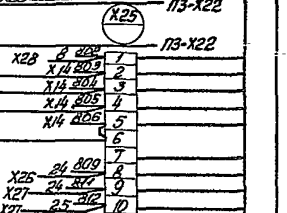 X25
ПЗ-X22
ПЗ-X22
X28 8 802 1
X14 803 2
X14 804 3
X14 805 4
X14 806 5
6
7
X25 24 809 8
X27 24 811 9
X27 25 812 10